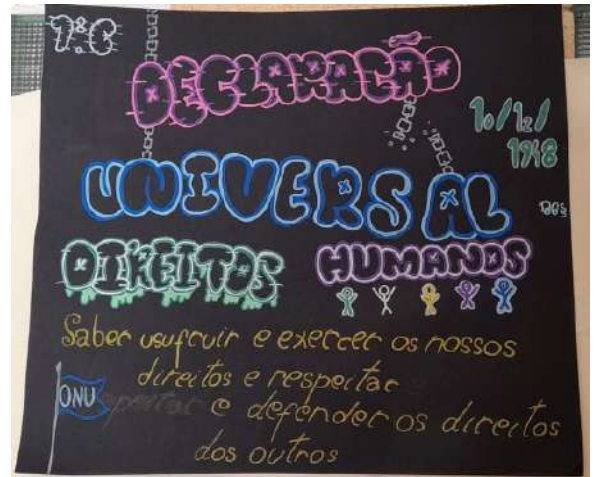 7.ºC
DECLARAÇÃO
10/12/
1948
UNIVERSAL
DOS
DIREITOS HUMANOS
Saber usufruir e exercer os nossos
direitos e respeitar
ONU
e defender os direitos
dos outros